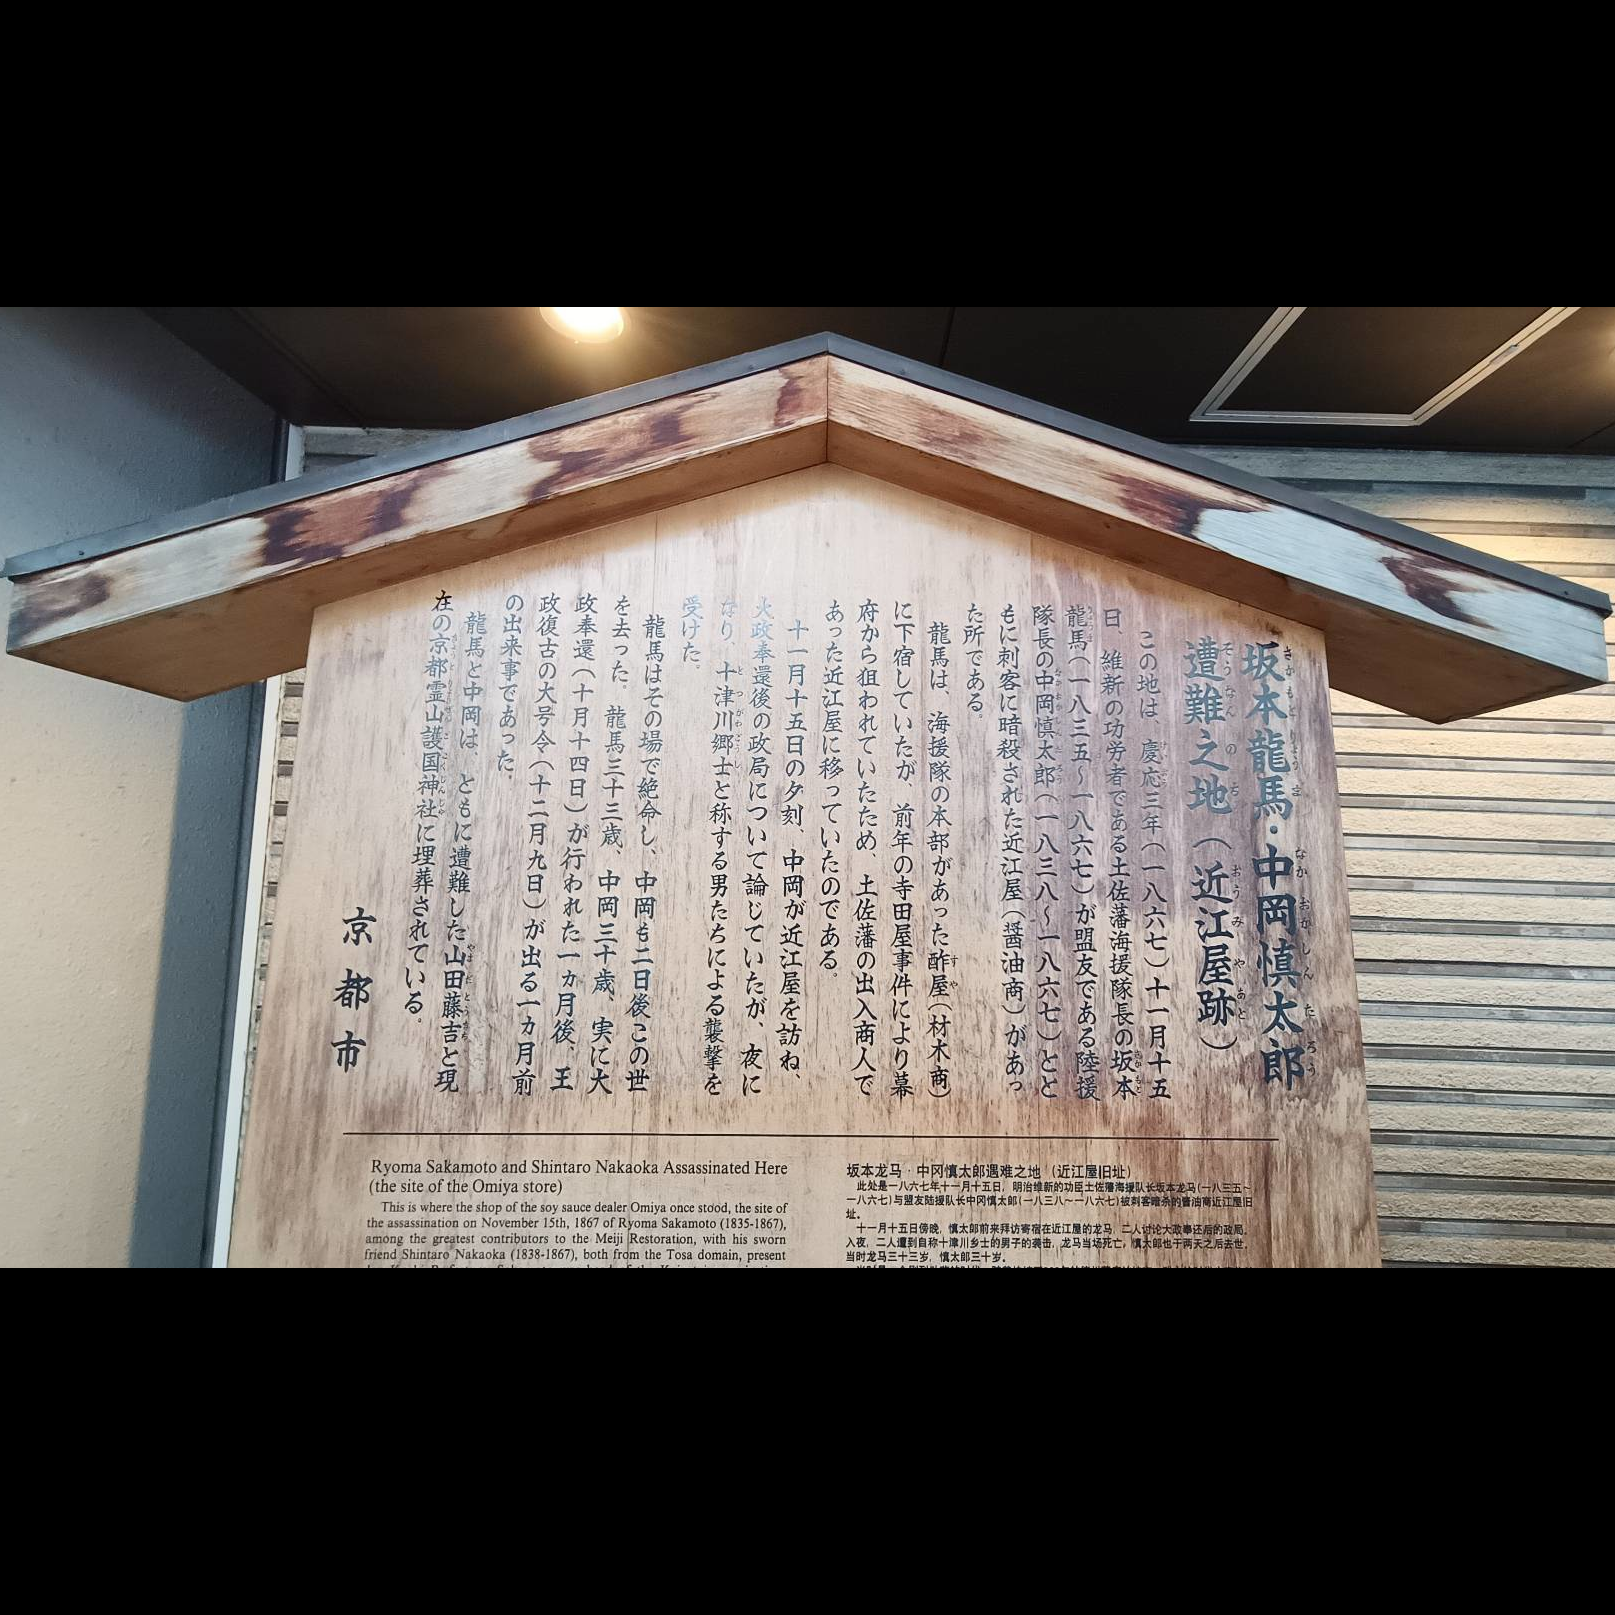 坂本龍馬・中岡慎太郎
遭難之地（近江屋跡）
この地は、慶応三年（一八六七）十一月十五
日、維新の功労者である土佐藩海援隊長の坂本
龍馬（一八三五～一八六七）が盟友である陸援
隊長の中岡慎太郎（一八三八～一八六七）とと
もに刺客に暗殺された近江屋（醤油商）があっ
た所である。
龍馬は、海援隊の本部があった酢屋（材木商）
に下宿していたが、前年の寺田屋事件により幕
府から狙われていたため、土佐藩の出入商人で
あった近江屋に移っていたのである。
十一月十五日の夕刻、中岡が近江屋を訪ね、
大政奉還後の政局について論じていたが、夜に
なり、十津川郷士と称する男たちによる襲撃を
受けた。
龍馬はその場で絶命し、中岡も二日後この世
を去った。龍馬三十三歳、中岡三十歳、実に大
政奉還（十月十四日）が行われた一カ月後、王
政復古の大号令（十二月九日）が出る一カ月前
の出来事であった。
龍馬と中岡は、ともに遭難した山田藤吉と現
在の京都霊山護国神社に埋葬されている。
京都市
Ryoma Sakamoto and Shintaro Nakaoka Assassinated Here
(the site of the Omiya store)
This is where the shop of the soy sauce dealer Omiya once stood, the site of
the assassination on November 15th, 1867 of Ryoma Sakamoto (1835-1867),
among the greatest contributors to the Meiji Restoration, with his sworn
friend Shintaro Nakaoka (1838-1867), both from the Tosa domain, present
坂本龙马・中冈慎太郎遇难之地（近江屋旧址）
此处是一八六七年十一月十五日，明治维新的功臣土佐藩海援队长坂本龙马（一八三五～
一八六七）与盟友陆援队长中冈慎太郎（一八三八～一八六七）被刺客暗杀的酱油商近江屋旧
址。
十一月十五日傍晚，慎太郎前来拜访寄宿在近江屋的龙马，二人讨论大政奉还后的政局。
入夜，二人遭到自称十津川乡士的男子的袭击，龙马当场死亡，慎太郎也于两天之后去世。
当时龙马三十三岁，慎太郎三十岁。